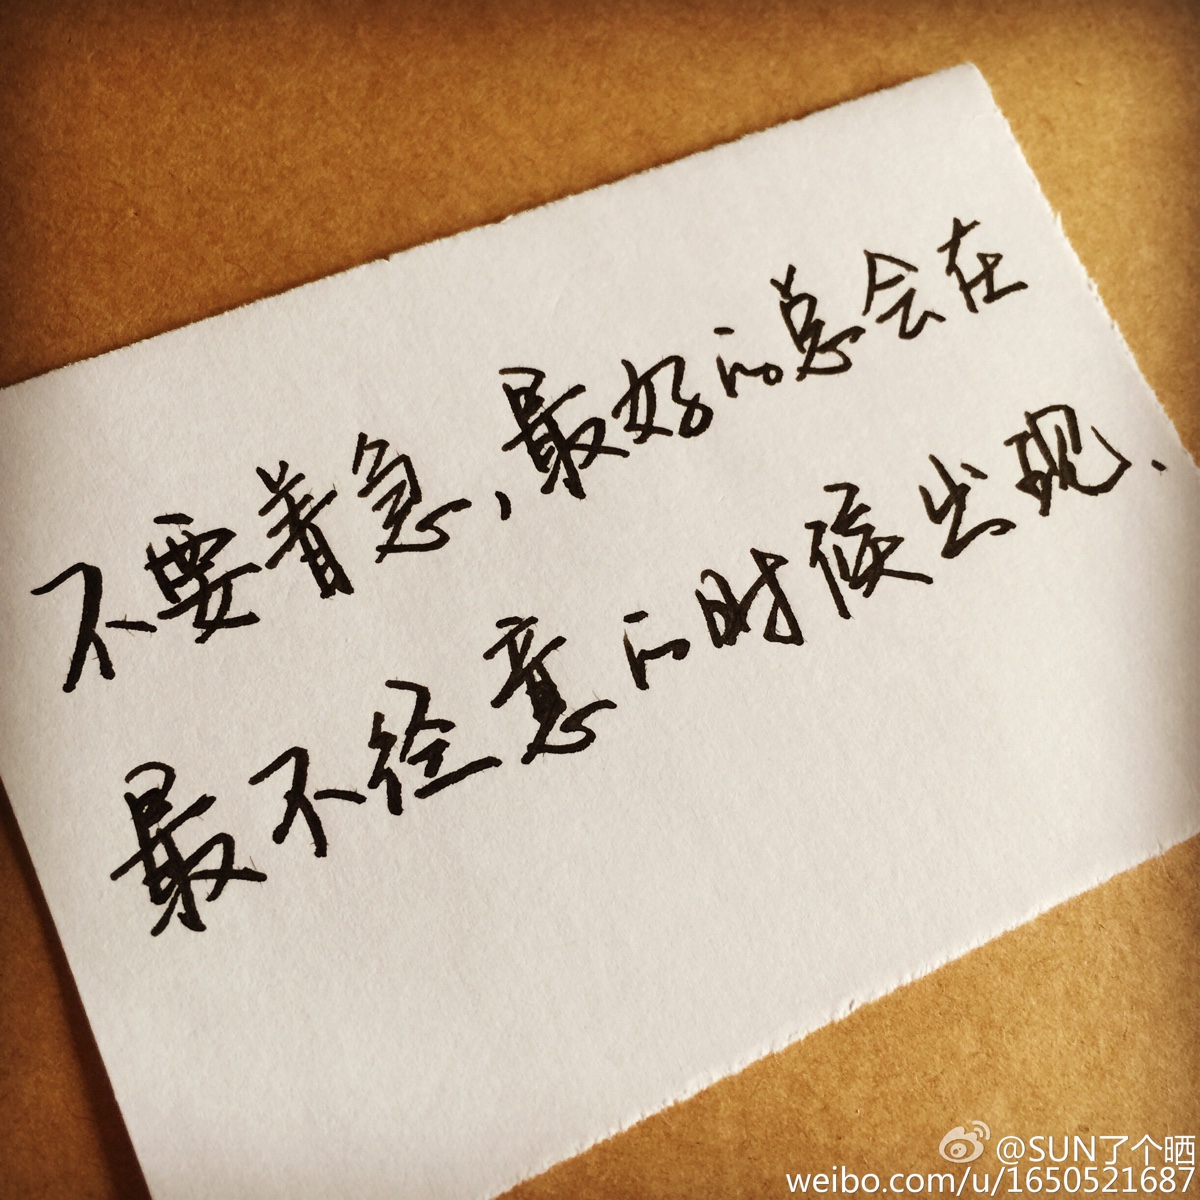 不要着急,最好的总会在
最不经意的时候出现.
@SUN了个晒
weibo.com/u/1650521687